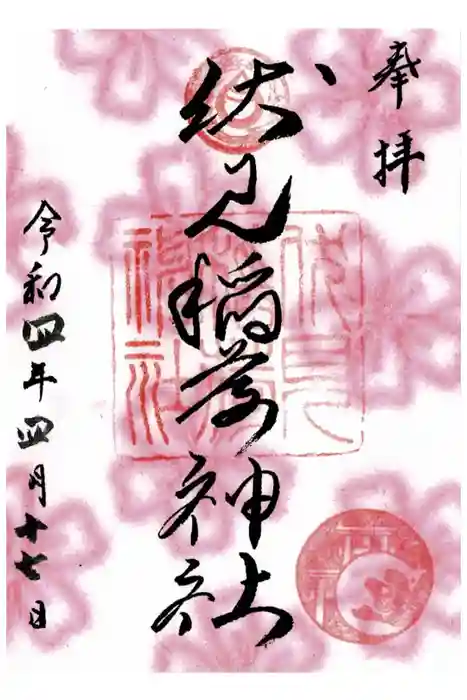 奉拝
伏見稲荷神社
令和四年四月十七日